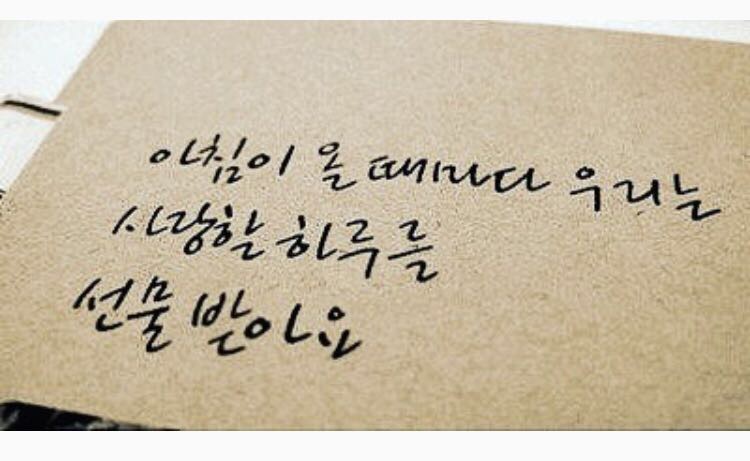 아침이 올 때마다 우리는
사랑할 하루를
선물 받아요